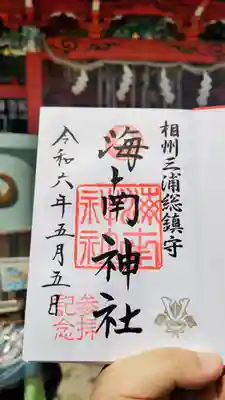 相州三浦総鎮守
海南神社
海南
神社
令和六年五月五日
参拝
記念